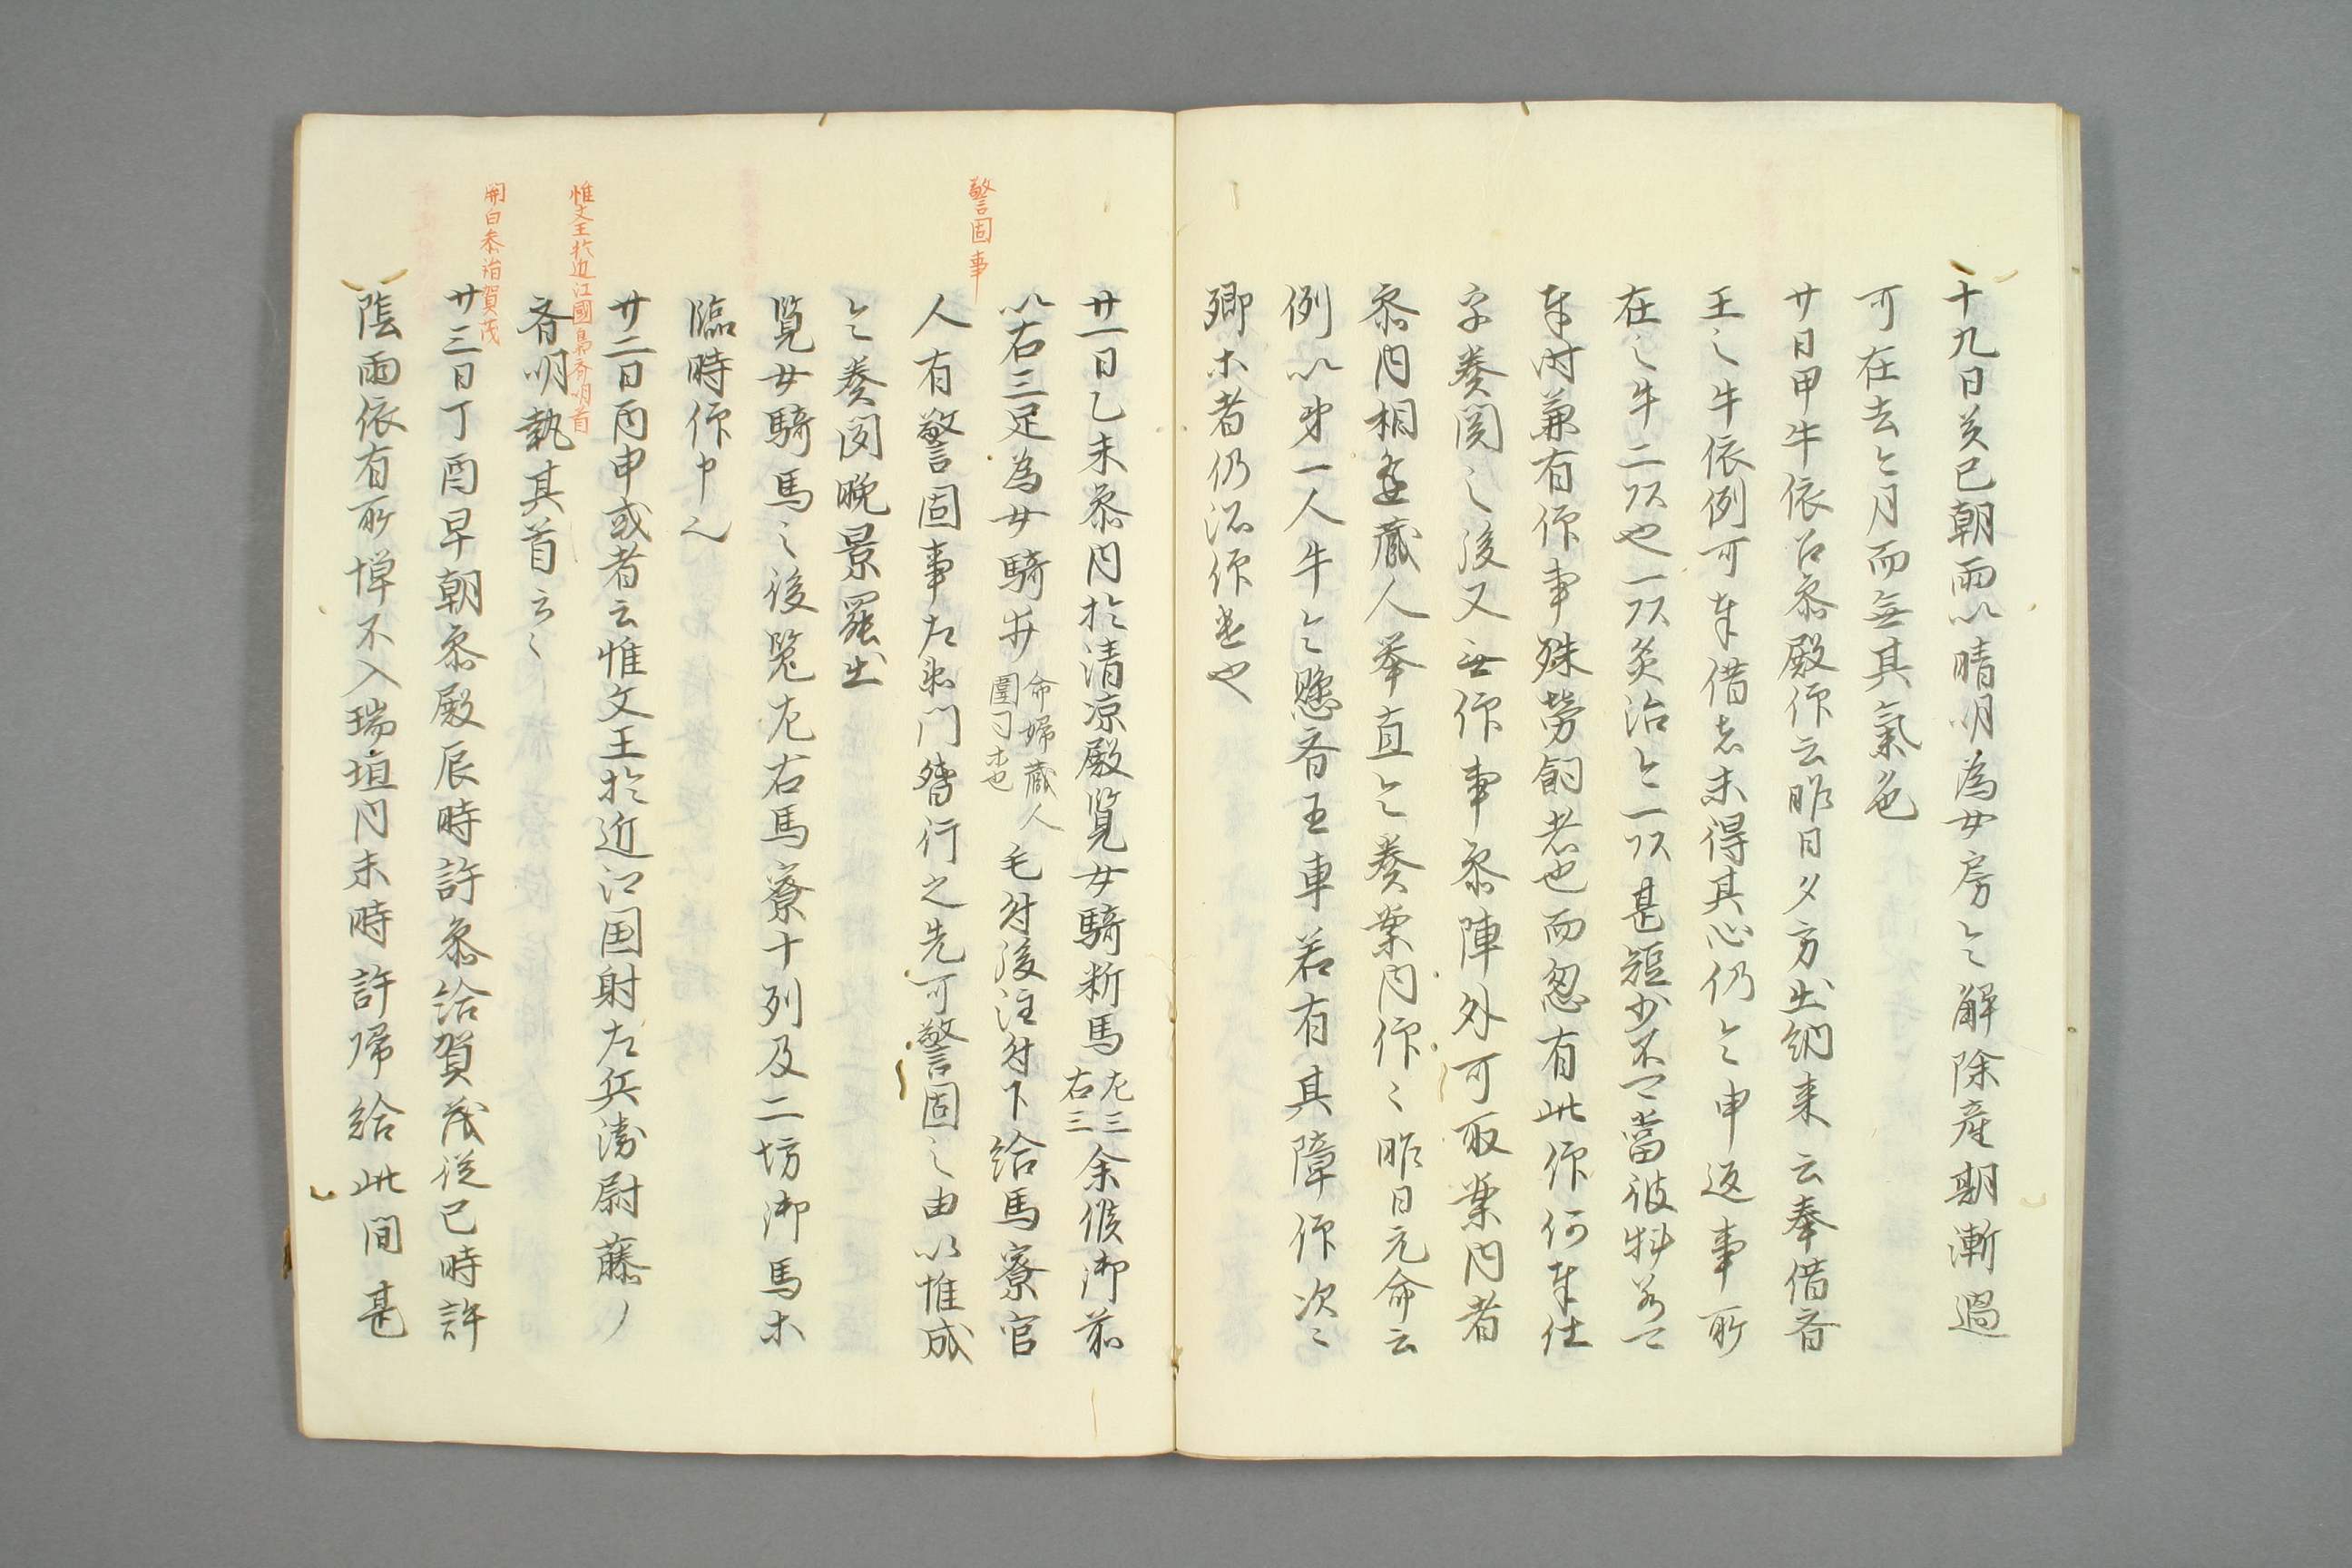 十九日癸巳朝雨以晴明為女房令解除産期漸過
可在去今月而無其氣色
廿日甲午依召参殿仰云昨日夕方出納来云奉借斉
王之牛依例可奉借者未得其心仍令申返事所
在之牛二頭也一頭灸治今一頭甚短少不可當彼料若可
奉時兼有仰事殊勞飼者也而忽有此仰何奉仕
字奏聞之後又無仰事参陣外可取案内者
参内相逢蔵人挙直令奏案内仰々昨日元命云
例以第一人牛令懸斉王車若有其障仰次々
卿木者仍沼仰也
警固事
廿一日乙未参内於清凉殿覧女騎料馬左三右三余候御前
以右三疋為女騎弁命婦蔵人圍司木也毛付後注付下給馬寮官
人有警固事左衛門督行之先可警固之由以惟成
令奏聞晩景罷出
覧女騎馬之後覧左右馬寮十列及二坊御馬木
臨時仰申之
惟文王於近江國梟斉明首
廿二日丙申或者云惟文王於近江国射左兵衛尉藤ノ
斉明執其首云々
関白参詣賀茂
廿三日丁酉早朝参殿辰時許参給賀茂従巳時許
陰雨依有所憚不入瑞垣内未時許帰給此間甚